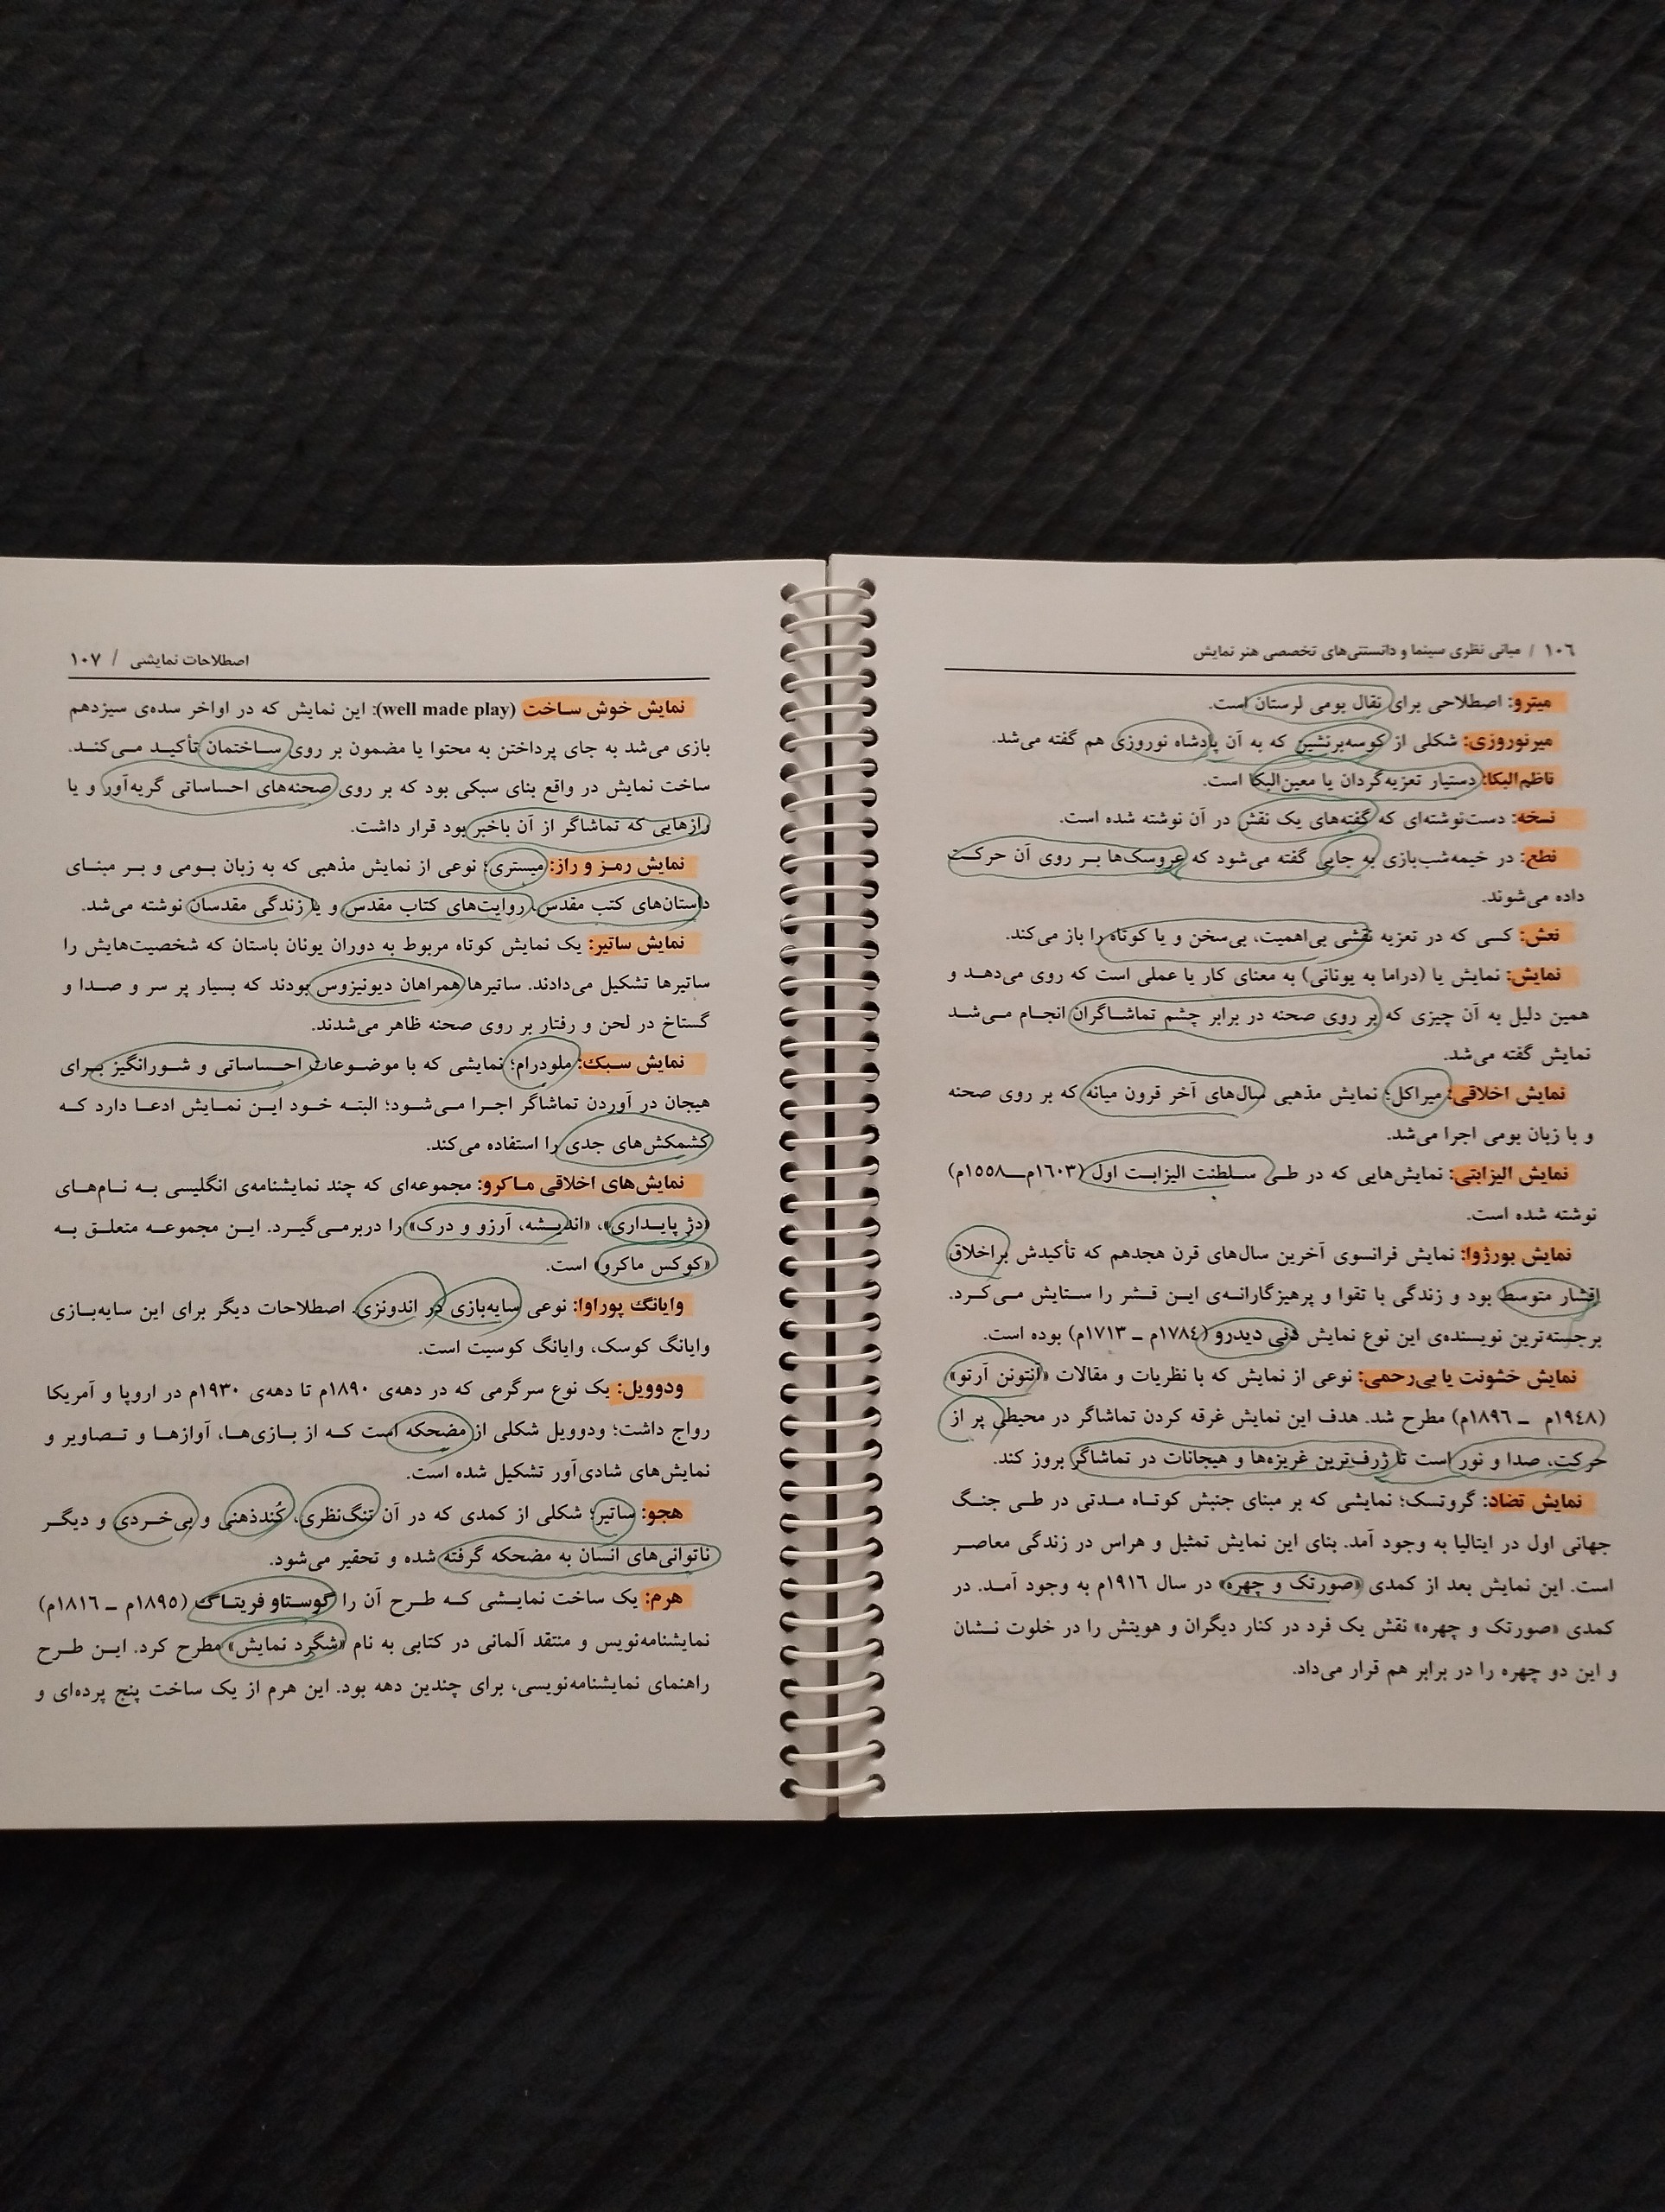 ١٠٦ / مبانی نظری سینما و دانستنی‌های تخصصی هنر نمایش
میترو: اصطلاحی برای نقال بومی لرستان است.
میرنوروزی: شکلی از کوسه‌برنشین که به آن پادشاه نوروزی هم گفته می‌شد.
ناظم‌البکا: دستیار تعزیه‌گردان یا معین‌البکا است.
نسخه: دست‌نوشته‌ای که گفته‌های یک نقش در آن نوشته شده است.
نطع: در خیمه‌شب‌بازی به جایی گفته می‌شود که عروسک‌ها بر روی آن حرکت
داده می‌شوند.
نعش: کسی که در تعزیه نقشی بی‌اهمیت، بی‌سخن و یا کوتاه را باز می‌کند.
نمایش: نمایش یا (دراما به یونانی) به معنای کار یا عملی است که روی می‌دهد و
همین دلیل به آن چیزی که بر روی صحنه در برابر چشم تماشاگران انجام می‌شد
نمایش گفته می‌شد.
نمایش اخلاقی: میراکل؛ نمایش مذهبی سال‌های آخر قرون میانه که بر روی صحنه
و با زبان بومی اجرا می‌شد.
نمایش الیزابتی: نمایش‌هایی که در طی سلطنت الیزابت اول (١٦٠٣م_١٥٥٨م)
نوشته شده است.
نمایش بورژوا: نمایش فرانسوی آخرین سال‌های قرن هجدهم که تأکیدش براخلاق
اقشار متوسط بود و زندگی با تقوا و پرهیزگارانه‌ی این قشر را ستایش می‌کرد.
برجسته‌ترین نویسنده‌ی این نوع نمایش دنی دیدرو (١٧٨٤م _ ١٧١٣م) بوده است.
نمایش خشونت یا بی‌رحمی: نوعی از نمایش که با نظریات و مقالات «آنتونن آرتو»
(١٩٤٨م _ ١٨٩٦م) مطرح شد. هدف این نمایش غرقه کردن تماشاگر در محیطی پر از
حرکت، صدا و نور است تا ژرف‌ترین غریزه‌ها و هیجانات در تماشاگر بروز کند.
نمایش تضاد: گروتسک؛ نمایشی که بر مبنای جنبش کوتاه مدتی در طی جنگ
جهانی اول در ایتالیا به وجود آمد. بنای این نمایش تمثیل و هراس در زندگی معاصر
است. این نمایش بعد از کمدی «صورتک و چهره» در سال ١٩١٦م به وجود آمد. در
کمدی «صورتک و چهره» نقش یک فرد در کنار دیگران و هویتش را در خلوت نشان
و این دو چهره را در برابر هم قرار می‌داد.
اصطلاحات نمایشی / ١٠٧
نمایش خوش ساخت (well made play): این نمایش که در اواخر سده‌ی سیزدهم
بازی می‌شد به جای پرداختن به محتوا یا مضمون بر روی ساختمان تأکید می‌کند.
ساخت نمایش در واقع بنای سبکی بود که بر روی صحنه‌های احساساتی گریه‌آور و یا
رازهایی که تماشاگر از آن باخبر بود قرار داشت.
نمایش رمز و راز: میستری؛ نوعی از نمایش مذهبی که به زبان بومی و بر مبنای
داستان‌های کتب مقدس، روایت‌های کتاب مقدس و یا زندگی مقدسان نوشته می‌شد.
نمایش ساتیر: یک نمایش کوتاه مربوط به دوران یونان باستان که شخصیت‌هایش را
ساتیرها تشکیل می‌دادند. ساتیرها همراهان دیونیزوس بودند که بسیار پر سر و صدا و
گستاخ در لحن و رفتار بر روی صحنه ظاهر می‌شدند.
نمایش سبک: ملودرام؛ نمایشی که با موضوعات احساساتی و شورانگیز برای
هیجان در آوردن تماشاگر اجرا می‌شود؛ البته خود این نمایش ادعا دارد که
کشمکش‌های جدی را استفاده می‌کند.
نمایش‌های اخلاقی ماکرو: مجموعه‌ای که چند نمایشنامه‌ی انگلیسی به نام‌های
«دژ پایداری»، «اندیشه، آرزو و درک» را دربرمی‌گیرد. این مجموعه متعلق به
«کوکس ماکرو» است.
وایانگ پوراوا: نوعی سایه‌بازی در اندونزی. اصطلاحات دیگر برای این سایه‌بازی
وایانگ کوسک، وایانگ کوسیت است.
ودوویل: یک نوع سرگرمی که در دهه‌ی ١٨٩٠م تا دهه‌ی ١٩٣٠م در اروپا و آمریکا
رواج داشت؛ ودوویل شکلی از مضحکه است که از بازی‌ها، آوازها و تصاویر و
نمایش‌های شادی‌آور تشکیل شده است.
هجو: ساتیر؛ شکلی از کمدی که در آن تنگ‌نظری، کُندذهنی و بی‌خردی و دیگر
ناتوانی‌های انسان به مضحکه گرفته شده و تحقیر می‌شود.
هرم: یک ساخت نمایشی که طرح آن را گوستاو فریتاگ (١٨٩٥م _ ١٨١٦م)
نمایشنامه‌نویس و منتقد آلمانی در کتابی به نام «شگرد نمایش» مطرح کرد. این طرح
راهنمای نمایشنامه‌نویسی، برای چندین دهه بود. این هرم از یک ساخت پنج پرده‌ای و